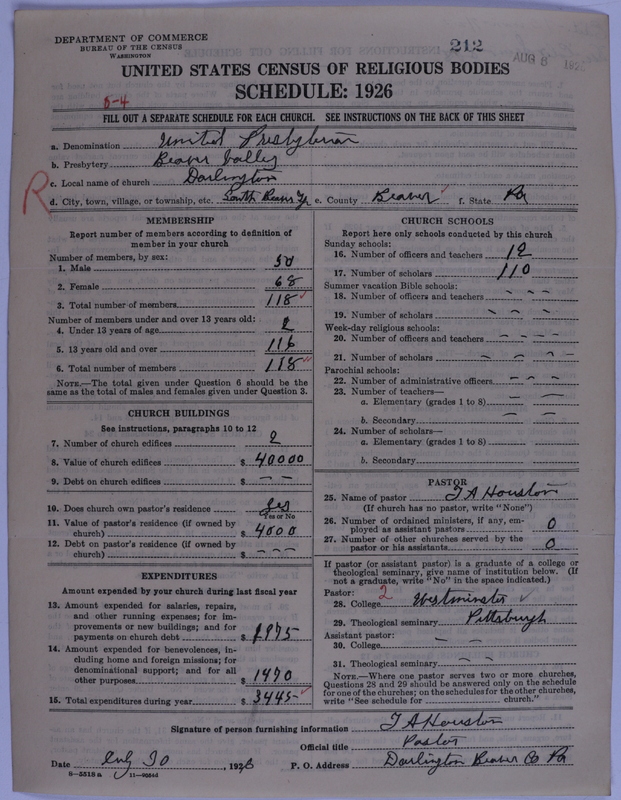 DEPARTMENT OF COMMERCE
BUREAU OF THE CENSUS
WASHINGTON
212
AUG 8 192
UNITED STATES CENSUS OF RELIGIOUS BODIES
SCHEDULE: 1926
6-4
FILL OUT A SEPARATE SCHEDULE FOR EACH CHURCH. SEE INSTRUCTIONS ON THE BACK OF THIS SHEET
a. Denomination United Presbyterian
b. Presbytery Beaver Valley
c. Local name of church Darlington
R
d. City, town, village, or township, etc. South Beaver Tp e. County Beaver f. State Pa
MEMBERSHIP
Report number of members according to definition of
member in your church
Number of members, by sex:
1. Male 50
2. Female 68
3. Total number of members 118
Number of members under and over 13 years old:
4. Under 13 years of age 2
5. 13 years old and over 116
6. Total number of members 118
NOTE.—The total given under Question 6 should be the
same as the total of males and females given under Question 3.
CHURCH BUILDINGS
See instructions, paragraphs 10 to 12
7. Number of church edifices 2
8. Value of church edifices $ 40000
9. Debt on church edifices $ – –
10. Does church own pastor's residence Yes
Yes or No
11. Value of pastor's residence (if owned by
church) $ 4000
12. Debt on pastor's residence (if owned by
church) $ – – –
EXPENDITURES
Amount expended by your church during last fiscal year
13. Amount expended for salaries, repairs,
and other running expenses; for im-
provements or new buildings; and for
payments on church debt $ 1975
14. Amount expended for benevolences, in-
cluding home and foreign missions; for
denominational support; and for all
other purposes $ 1470
15. Total expenditures during year $ 3445
CHURCH SCHOOLS
Report here only schools conducted by this church
Sunday schools:
16. Number of officers and teachers 12
17. Number of scholars 110
Summer vacation Bible schools:
18. Number of officers and teachers – – –
19. Number of scholars – – –
Week-day religious schools:
20. Number of officers and teachers – – – –
21. Number of scholars – – – –
Parochial schools:
22. Number of administrative officers – – –
23. Number of teachers—
a. Elementary (grades 1 to 8) – –
b. Secondary – –
24. Number of scholars—
a. Elementary (grades 1 to 8)
b. Secondary
PASTOR
25. Name of pastor T A Houston
(If church has no pastor, write "None")
26. Number of ordained ministers, if any, em-
ployed as assistant pastors 0
27. Number of other churches served by the
pastor or his assistants 0
If pastor (or assistant pastor) is a graduate of a college or
theological seminary, give name of institution below. (If
not a graduate, write "No" in the space indicated.)
Pastor: 2
28. College Westminster
29. Theological seminary Pittsburgh
Assistant pastor:
30. College – –
31. Theological seminary – –
NOTE.—Where one pastor serves two or more churches,
Questions 28 and 29 should be answered only on the schedule
for one of the churches; on the schedules for the other churches,
write "See schedule for church."
Signature of person furnishing information T A Houston
Official title Pastor
Date July 30, 1926 P. O. Address Darlington Beaver Co Pa
8—5518 a